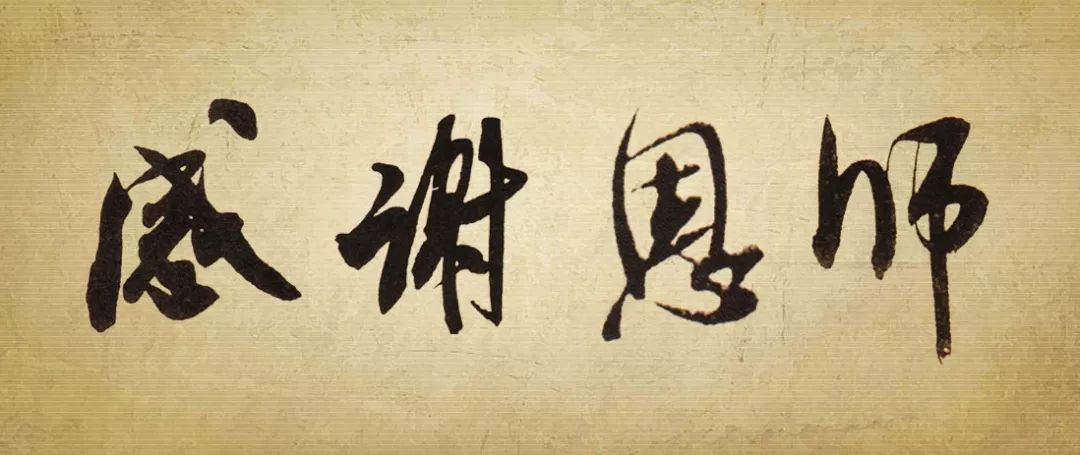 感谢恩师